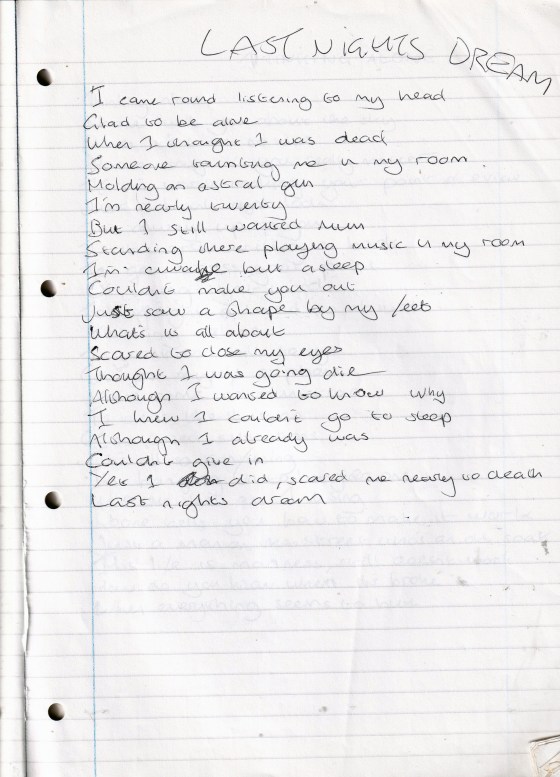 LAST NIGHTS DREAM
I came round listening to my head
Glad to be alive
When I thought I was dead
Someone taunting me in my room.
Holding an astral gun
I'm nearly twenty
But I still wanted mum
Standing there playing music in my room
I'm awake but asleep
Couldn't make you out
Just saw a shape by my feet
Whats is all about
Scared to close my eyes
Thought I was going die
Although I wanted to know why
I knew I couldn't go to sleep
Although I already was
Couldn't give in
Yet I did, scared me nearly to death
Last nights dream